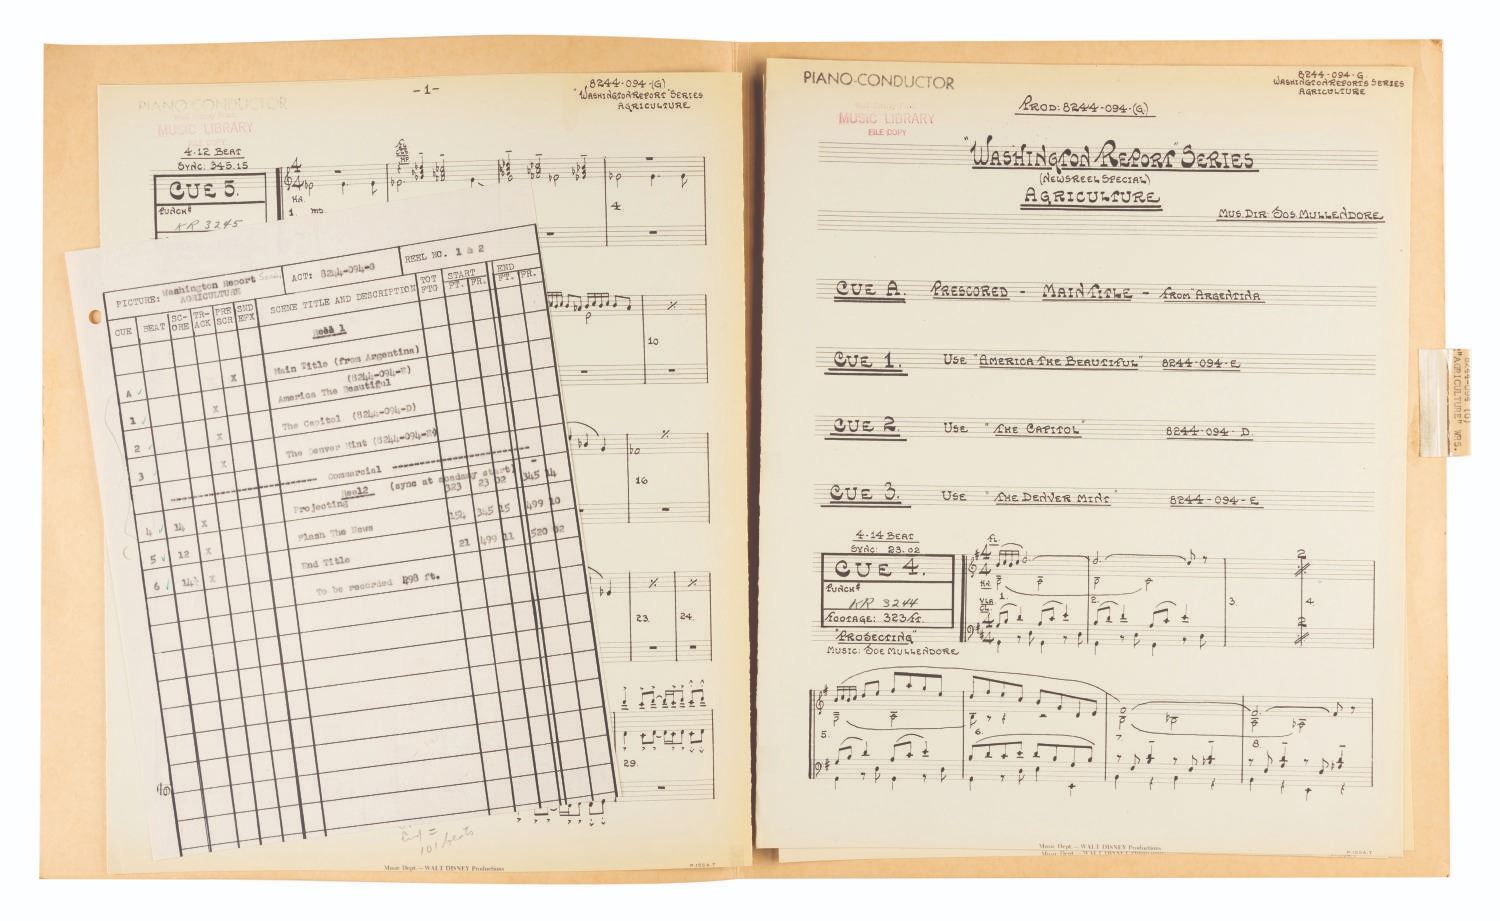 -1-
8244-094-(G)
"WASHINGTON REPORT" SERIES
AGRICULTURE
PIANO-CONDUCTOR
MUSIC LIBRARY
FILE COPY
4-12 BEAT
SYNC: 345.15
CUE 5.
PUNCH#
KR 3245
HN.
1.
mp
4
10
16
23.
24.
29.
PICTURE: Washington Report
AGRICULTURE
ACT: 8244-094-G
REEL NO. 1 & 2
CUE BEAT SC-ORE TR-ACK PRE SCR SND EFX SCENE TITLE AND DESCRIPTION TOT FTG START FT. FR. END FT. FR.
Reel 1
A X Main Title (from Argentina)
(8244-094-E)
1 X America The Beautiful
2 X The Capitol (8244-094-D)
3 X The Denver Mint (8244-094-E)
Commercial
Reel2 (sync at academy start)
4 14 X Projecting 323 23 02 345 14
5 12 X Flash The News 154 345 15 499 10
6 14½ X End Title 21 499 11 520 02
To be recorded 498 ft.
101 beats
Music Dept. — WALT DISNEY Productions
P-1554-T
PIANO-CONDUCTOR
MUSIC LIBRARY
FILE COPY
8244-094-G
WASHINGTON REPORTS SERIES
AGRICULTURE
PROD: 8244-094-(G)
"WASHINGTON REPORT" SERIES
(NEWSREEL SPECIAL)
AGRICULTURE
MUS. DIR: JOS. MULLENDORE
CUE A. PRESCORED - MAIN TITLE - FROM "ARGENTINA
CUE 1. USE "AMERICA THE BEAUTIFUL" 8244-094-E
CUE 2. USE "THE CAPITOL" 8244-094-D
CUE 3. USE "THE DENVER MINT" 8244-094-E
4-14 BEAT
SYNC: 23.02
CUE 4.
PUNCH#
KR 3244
FOOTAGE: 323 FT.
"PROJECTING"
MUSIC: JOE MULLENDORE
FL.
HN.
VLA.
CL.
1.
2.
3.
4.
2
2
5.
6.
7
8.
Music Dept. — WALT DISNEY Productions
P-1554-T
8244-094 (G)
"AGRICULTURE" WRS.